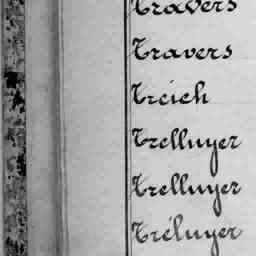 Travers
Travers
Treich
Trelluyer
Trelluyer
Tréluyer